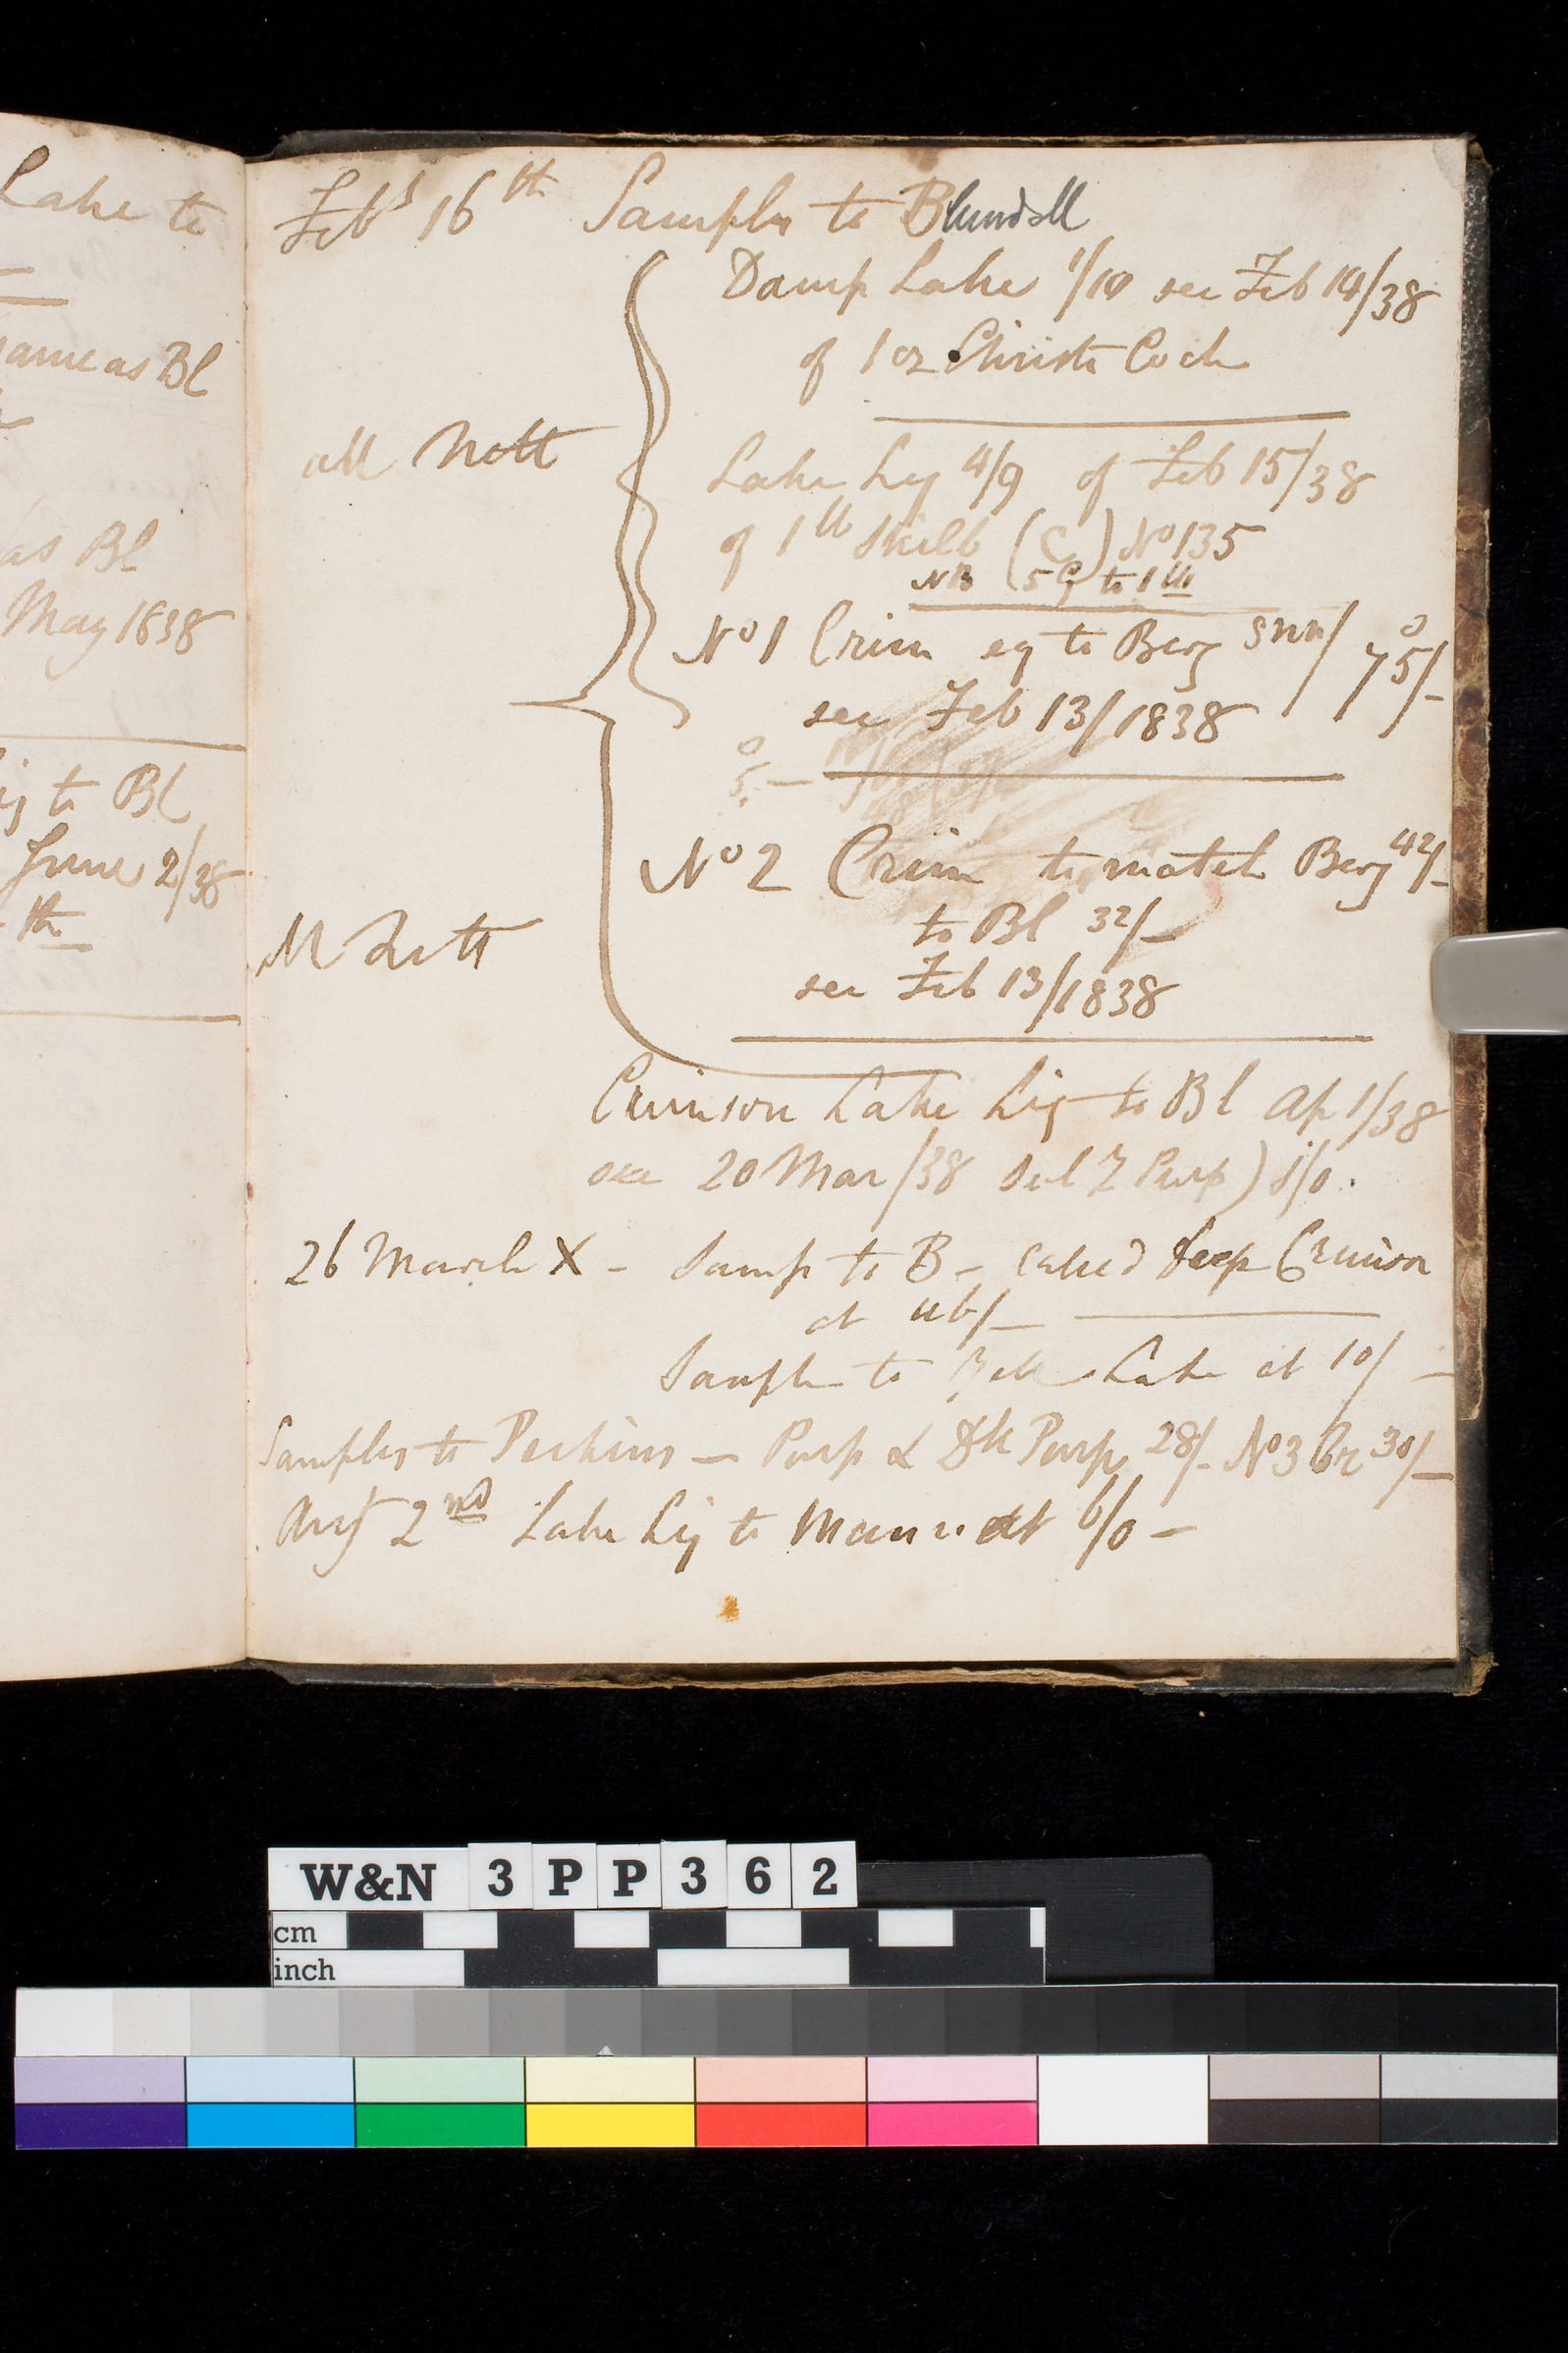 Lake to
same as Bl
as Bl
May 1838
to Bl
June 2/38
Feb 16th Samples to Blundell
Damp Lake 1/10 see Feb 14/38
of 1 oz Christs Coch
all Nett
Lake Liq 4/9 of Feb 15/38
of 1 lb (C) No 135
NB to 1 lb
No 1 Crim eq to Berg 75/-
see Feb 13/1838
No 2 Crim to match Berg 42/-
to Bl 32/-
see Feb 13/1838
Crimson Lake Liq to Bl Ap 1/38
see 20 Mar/38 Purp)
26 March X - Samp to B - called deep Crimson
at
Sample to Lake at 10/-
Samples to Perkins - Purp & Dk Purp 28/- No 3 Cr 30/-
2nd Lake Liq to at 6/0 -
W&N 3PP362
cm
inch